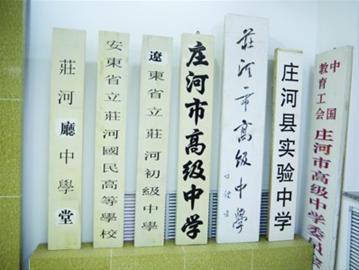 莊河廳中學堂
安東省立莊河國民高等學校
遼東省立莊河初級中學
庄河市高级中学
莊河市高級中學
庄河县实验中学
中国教育工会
庄河市高级中学委员会